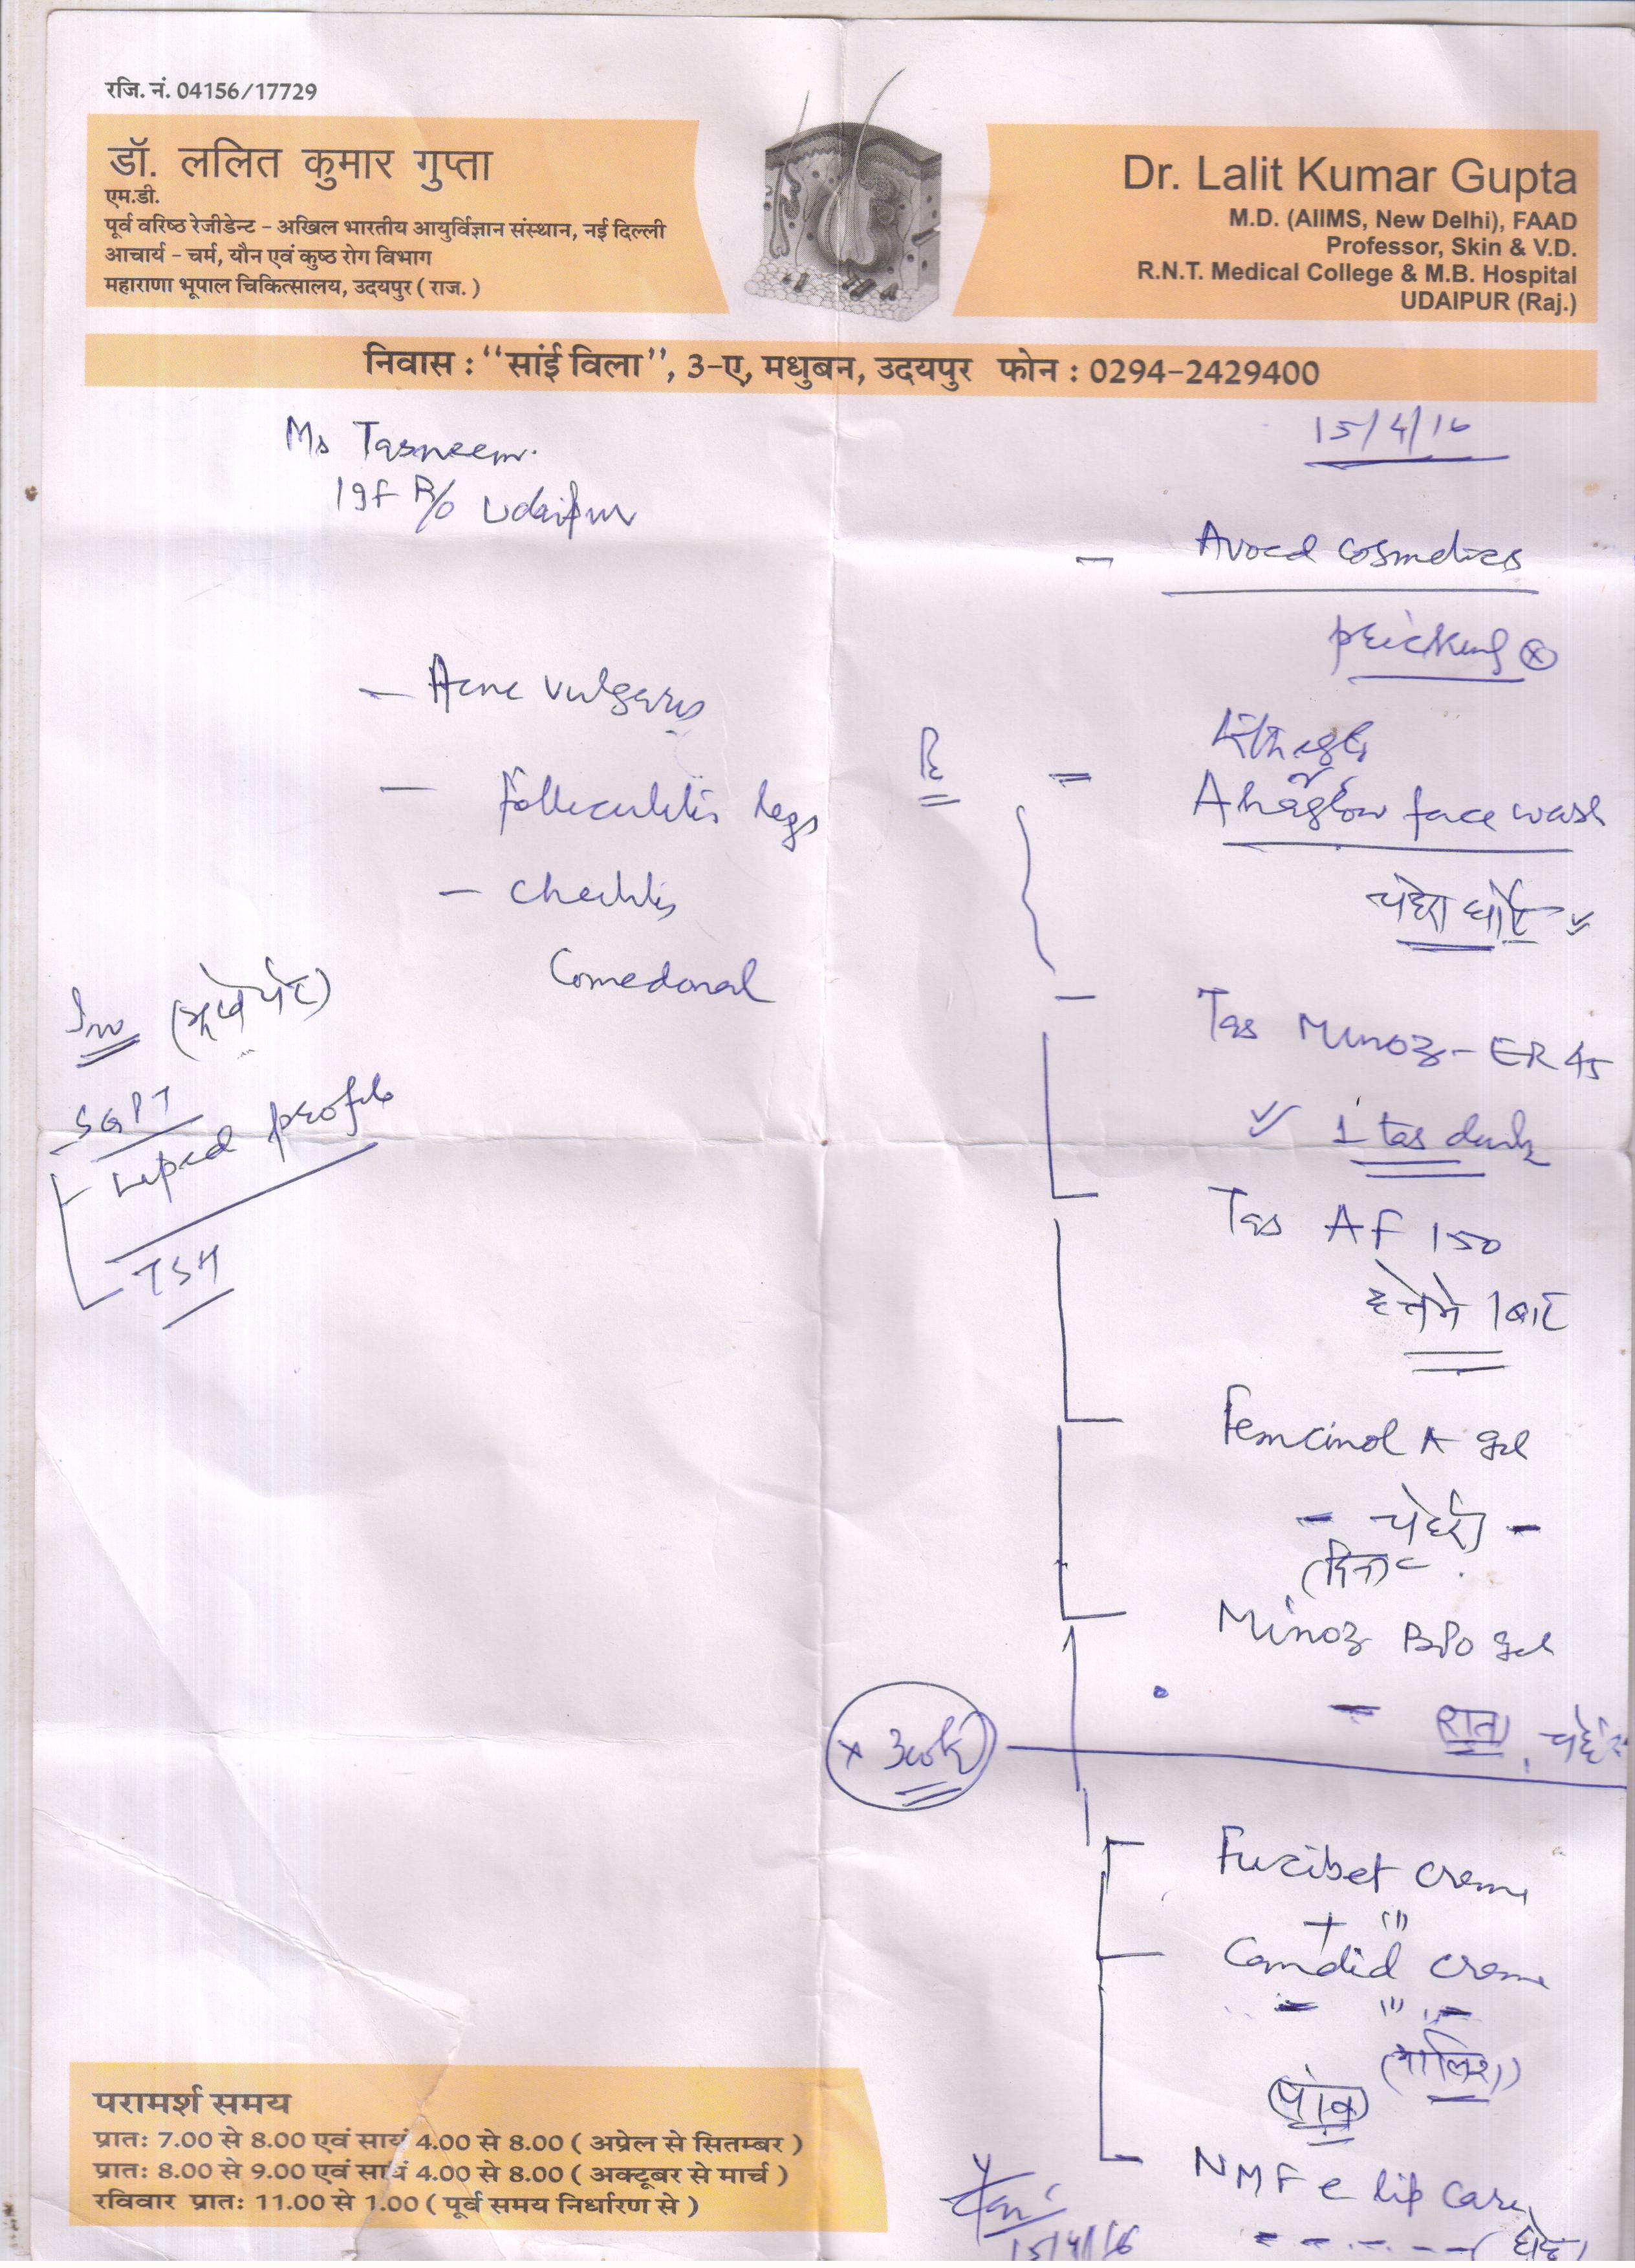 रजि. नं. 04156/17729
डॉ. ललित कुमार गुप्ता
एम.डी.
पूर्व वरिष्ठ रेजीडेन्ट - अखिल भारतीय आयुर्विज्ञान संस्थान, नई दिल्ली
आचार्य - चर्म, यौन एवं कुष्ठ रोग विभाग
महाराणा भूपाल चिकित्सालय, उदयपुर ( राज. )
Dr. Lalit Kumar Gupta
M.D. (AIIMS, New Delhi), FAAD
Professor, Skin & V.D.
R.N.T. Medical College & M.B. Hospital
UDAIPUR (Raj.)
निवास : "सांई विला", 3-ए, मधुबन, उदयपुर फोन : 0294-2429400
Ms Tasneem
19F R/o Udaipur
15/4/16
- Acne vulgaris
- Folliculitis legs
- Cheilitis
Comedonal
Inv (भूखे पेट)
SGPT
Lipid profile
TSH
- Avoid cosmetics
pricking
Rx
Ahaglow face wash
चेहरा धोएं
Tab Minoz-ER 45
1 tab daily
Tab AF 150
हफ्ते में 1 बार
Femcinol A gel
- चेहरे -
(दिन)
Minoz BPO gel
- रात, चेहरे
x 3wk
Fucibet creme
+
Candid creme
(मालिश)
(पांव)
NMF e lip care
(होंठ)
15/4/16
परामर्श समय
प्रातः 7.00 से 8.00 एवं सायं 4.00 से 8.00 ( अप्रेल से सितम्बर )
प्रातः 8.00 से 9.00 एवं सायं 4.00 से 8.00 ( अक्टूबर से मार्च )
रविवार प्रातः 11.00 से 1.00 ( पूर्व समय निर्धारण से )